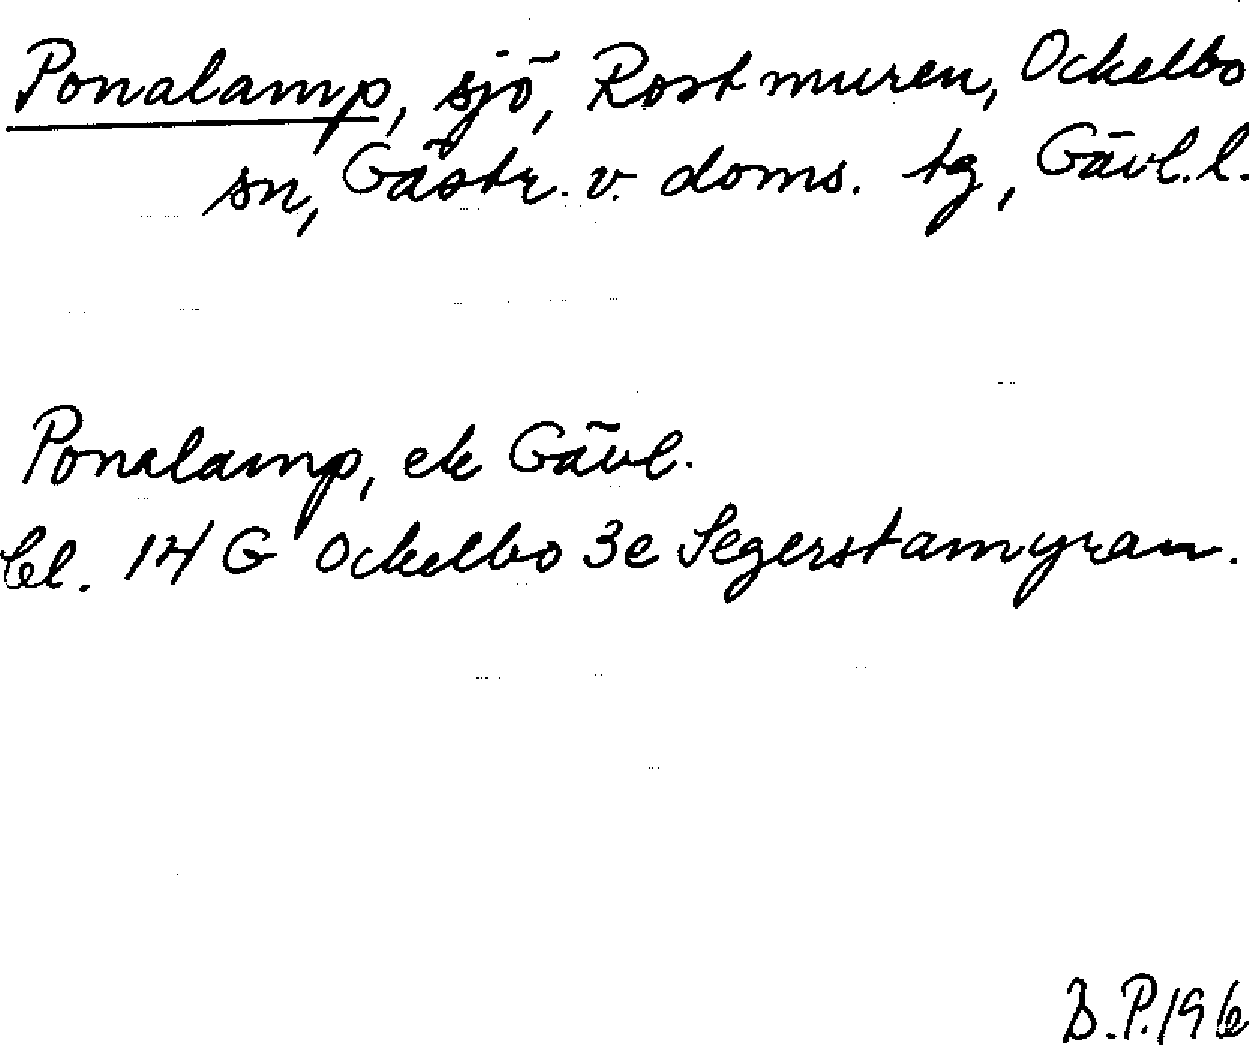 Ponalamp, sjö, Rostmuren, Ockelbo
sn, Gästr. v. doms. tg, Gävl.l.
Ponalamp, ek Gävl.
Bl. 14 G Ockelbo 3e Segerstamyran.
B.P.196